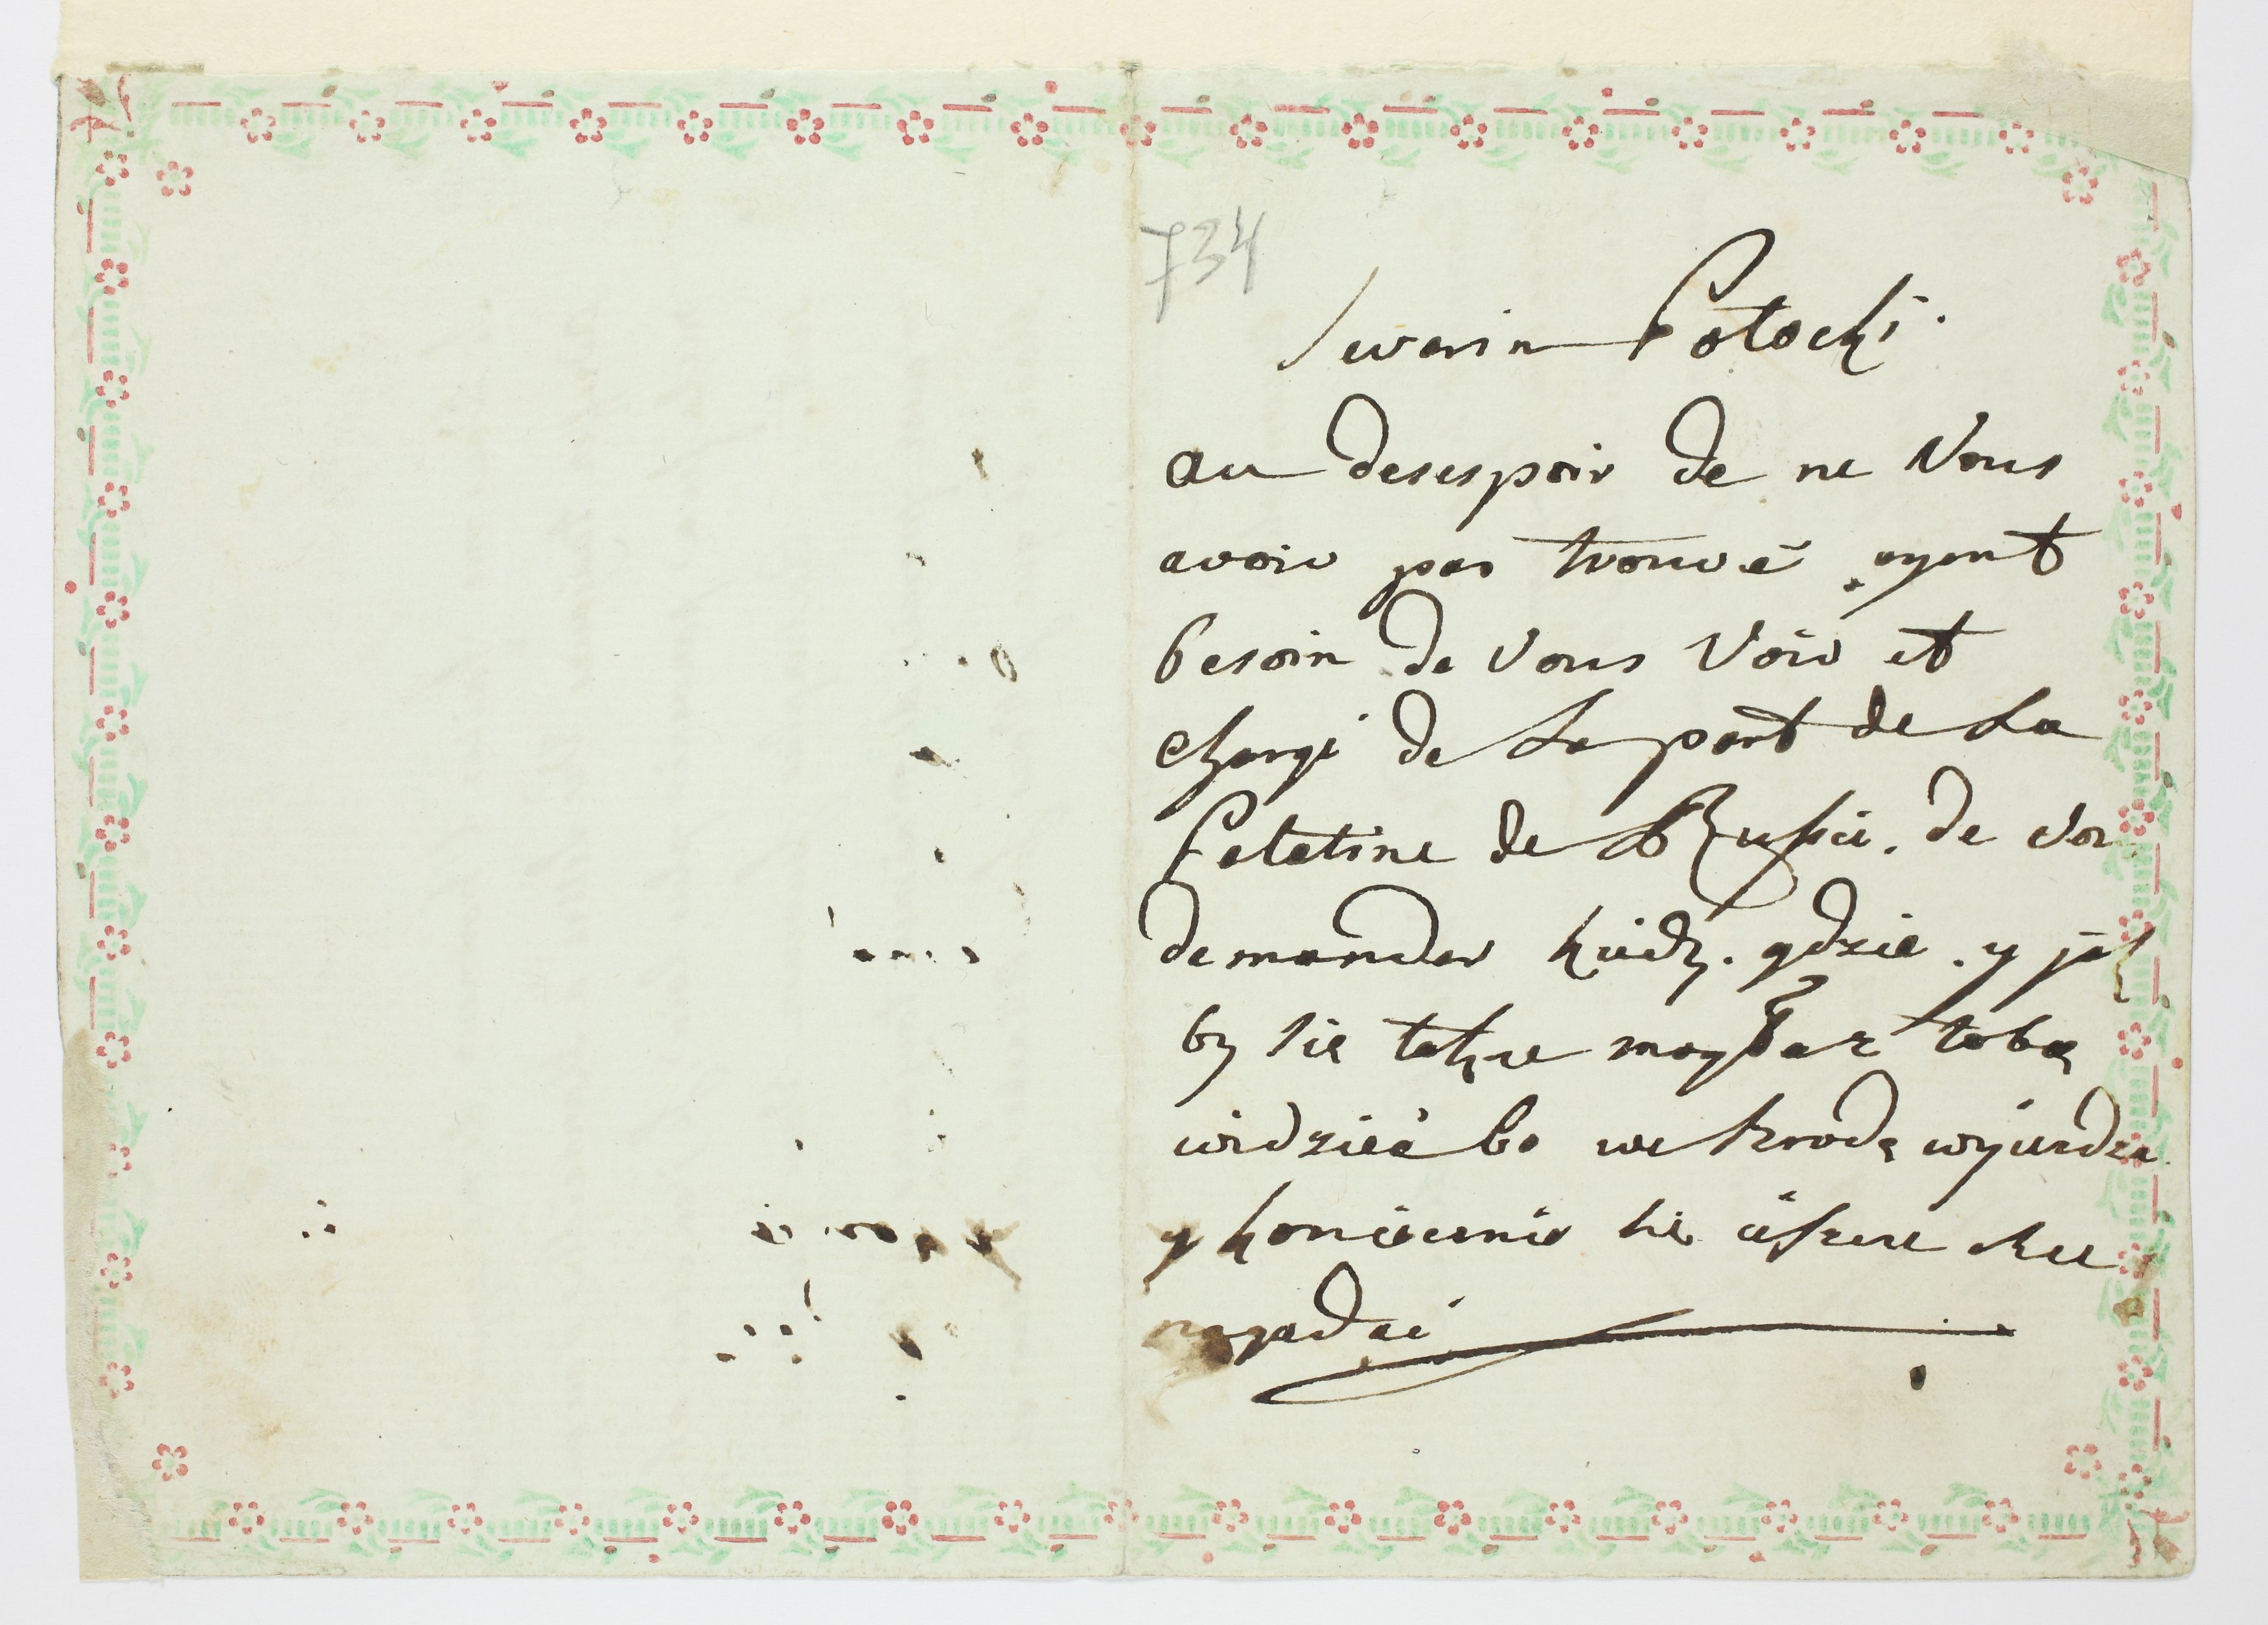 734
Sewerin Potocki.
au desespoir de ne Vous
avoir pas trouvé ayant
besoin de Vous Voir et
chargé de La part de La
Palatine de Russie. de vou
demander kiedy. gdzie. y jak
by sie także mogła z tobą
widzieć bo we srzodę wyjezdza
y koniecznie sie chce
nagadać